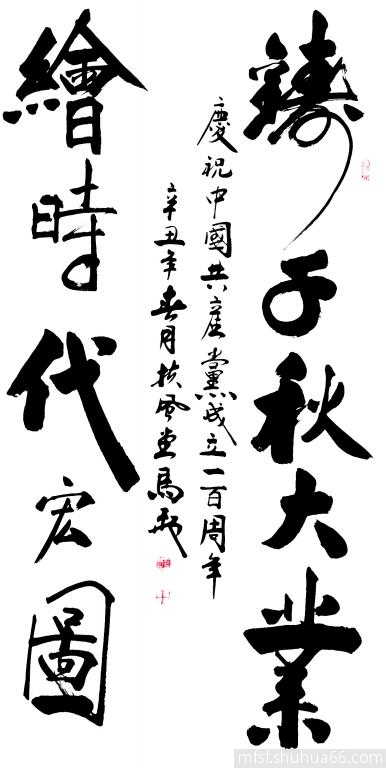 鑄千秋大業
慶祝中國共產黨成立一百周年
辛丑年春月扶風堂馬
繪時代宏圖
mfsf.shuhua66.com